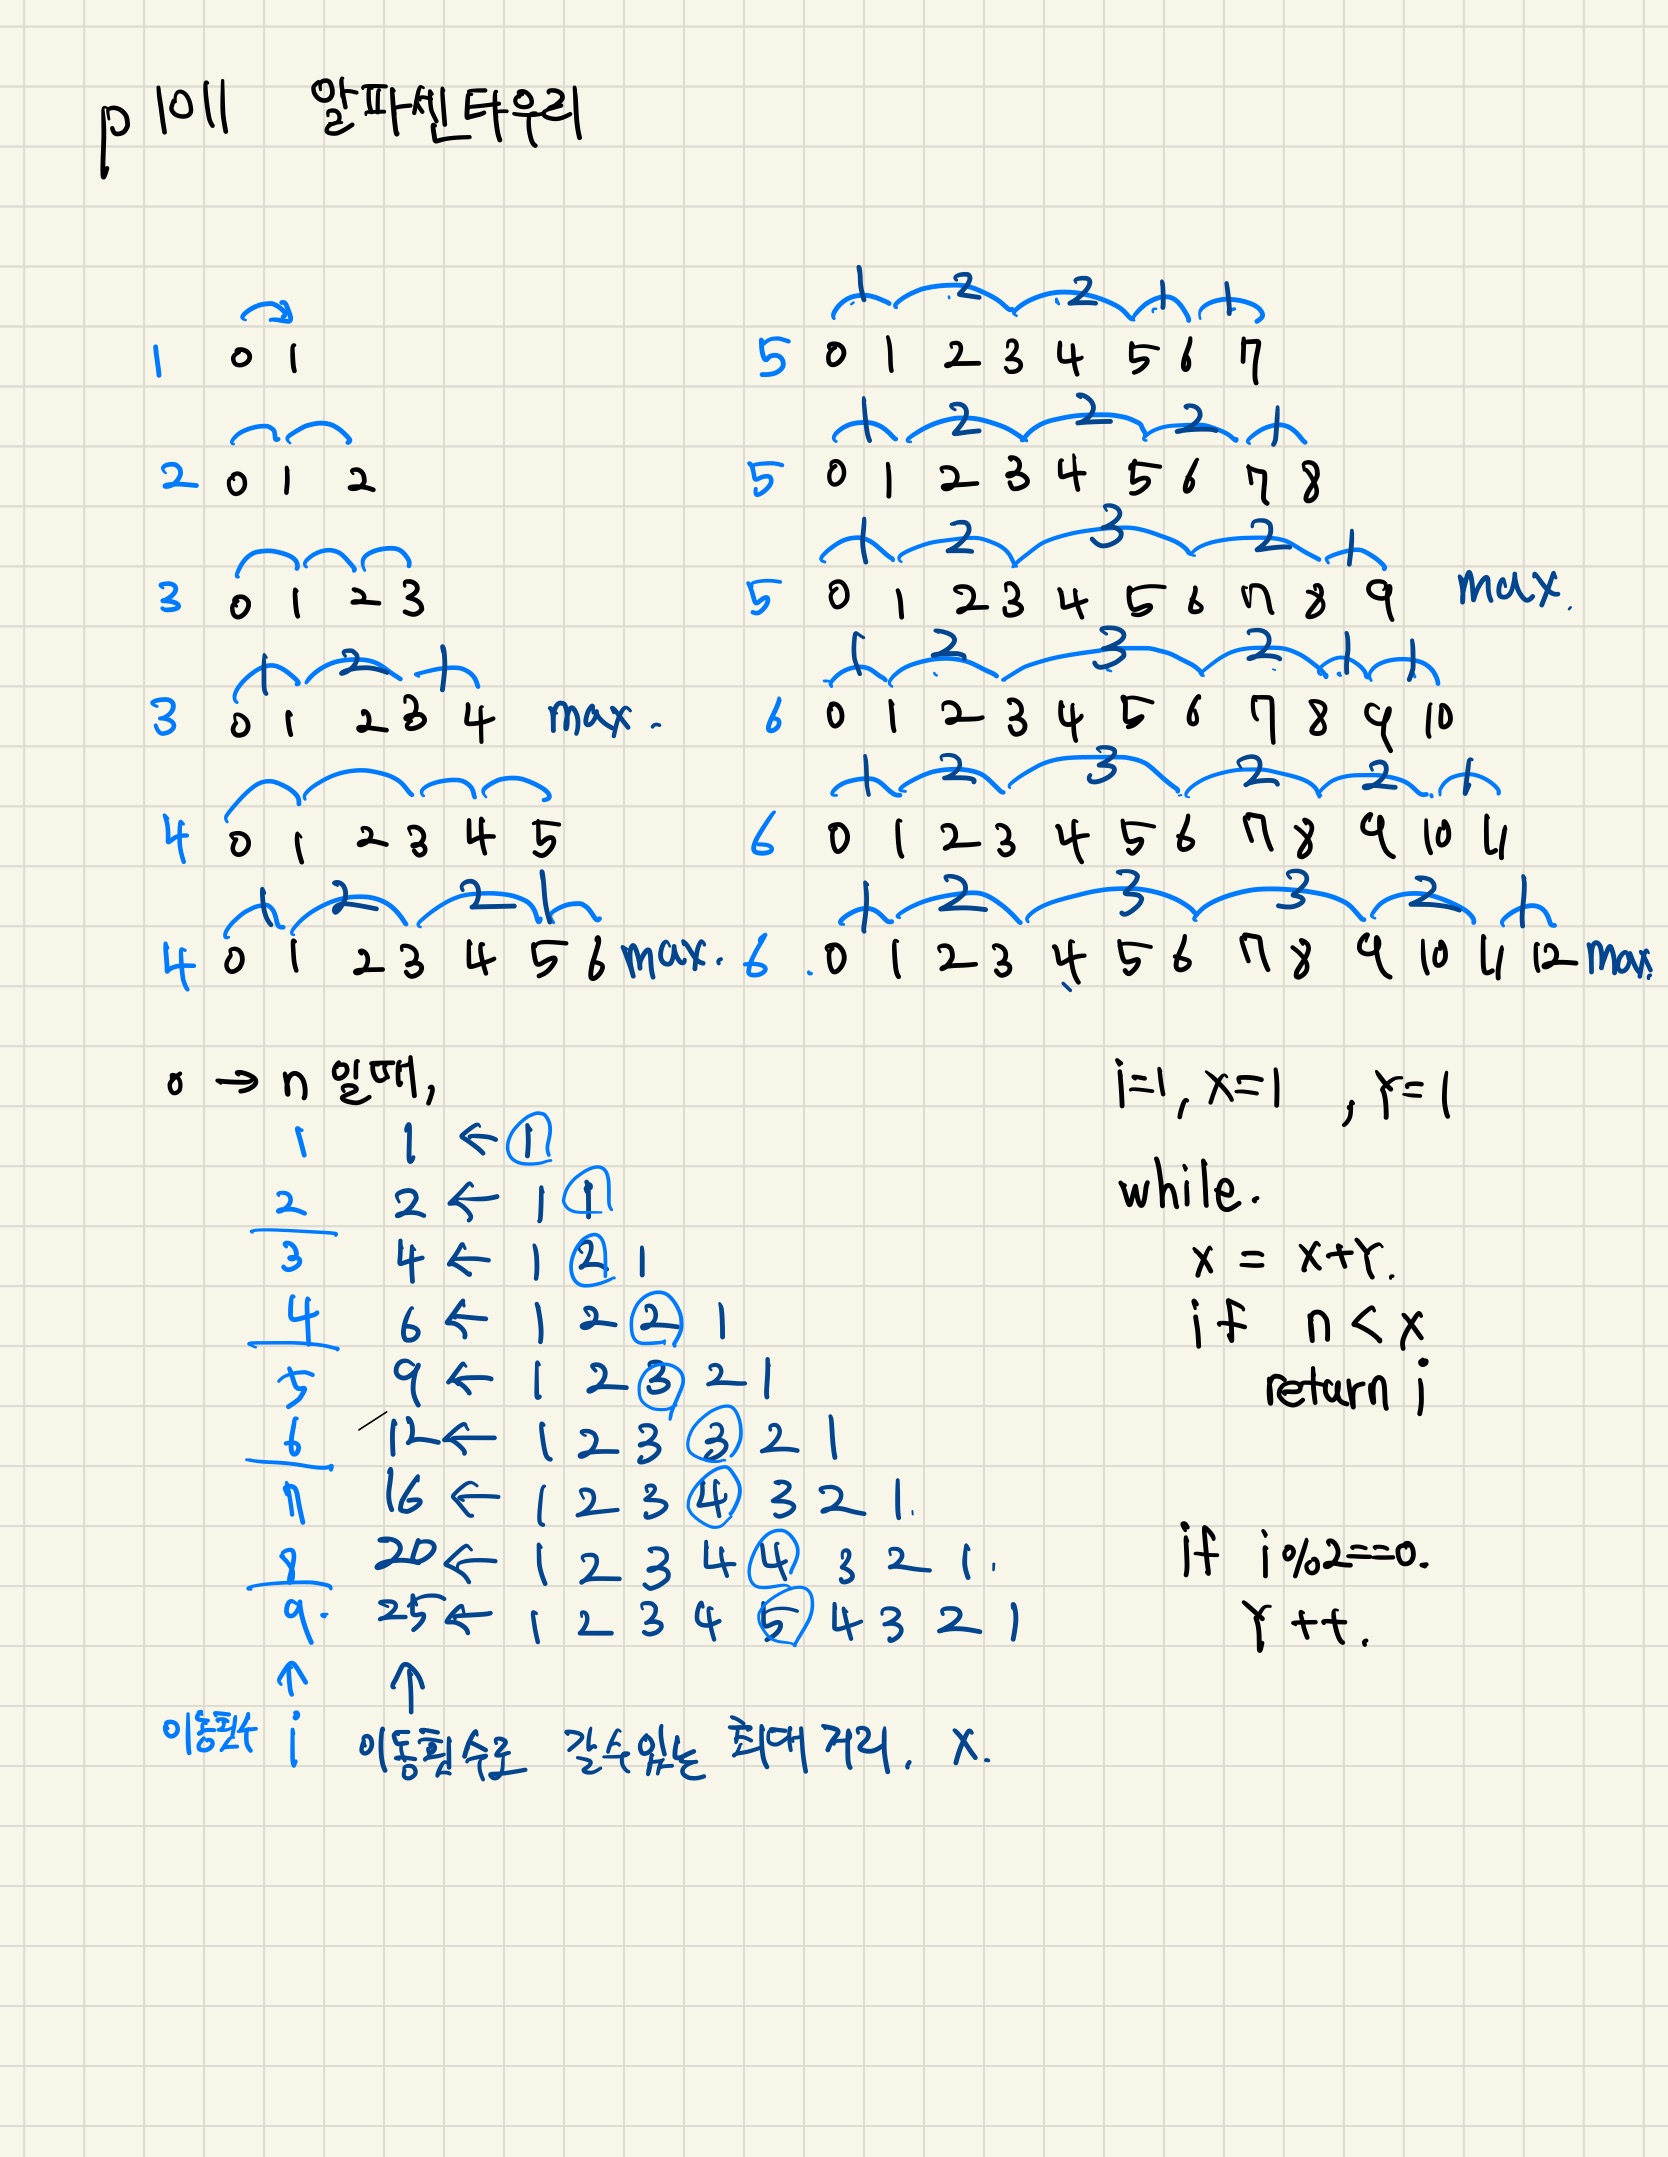 p 1011 알파센타우리
1
0 1
2 0 1 2
3 0 1 2 3
1 2 1
3 0 1 2 3 4 max.
4 0 1 2 3 4 5
1 2 2 1
4 0 1 2 3 4 5 6 max.
1 2 2 1 1
5 0 1 2 3 4 5 6 7
1 2 2 2 1
5 0 1 2 3 4 5 6 7 8
1 2 3 2 1
5 0 1 2 3 4 5 6 7 8 9 max.
1 2 3 2 1 1
6 0 1 2 3 4 5 6 7 8 9 10
1 2 3 2 2 1
6 0 1 2 3 4 5 6 7 8 9 10 11
1 2 3 3 2 1
6 . 0 1 2 3 4 5 6 7 8 9 10 11 12 max.
0 → n 일때,
1 1 ← 1
2 2 ← 1 1
3 4 ← 1 2 1
4 6 ← 1 2 2 1
5 9 ← 1 2 3 2 1
6 12 ← 1 2 3 3 2 1
7 16 ← 1 2 3 4 3 2 1.
8 20 ← 1 2 3 4 4 3 2 1.
9. 25 ← 1 2 3 4 5 4 3 2 1
↑ ↑
이동횟수 i 이동횟수로 갈수있는 최대 거리. x.
i=1, x=1 , Y=1
while.
x = x+Y.
if n < x
return i
if i%2==0.
Y ++.